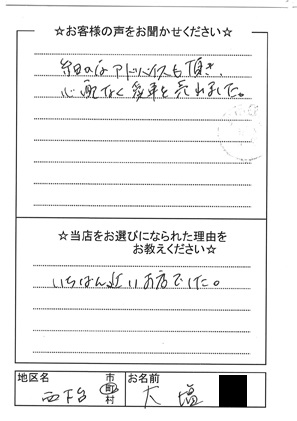 ☆お客様の声をお聞かせください☆
細かなアドバイスも頂き、
心配なく愛車を売れました。
☆当店をお選びになられた理由を
お教えください☆
いちばん近いお店でした。
地区名 市町村 お名前
西下台 大塩